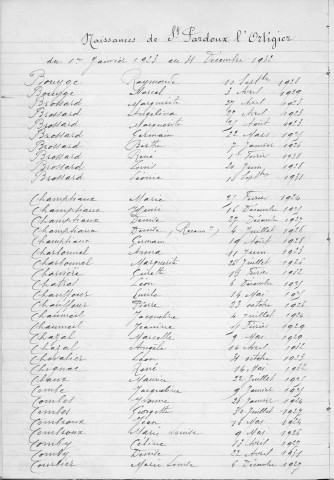 Naissances de St Pardoux l'Ortigier
du 1er Janvier 1923 au 31 Décembre 1932
Bouyge Raymonde 10 Septbre
Bouyge Marcel 3 Avril 1929
Brossard Marguerite 27 Avril 1923
Brossard Angelina 22 Avril 1923
Brossard Marguerite Août 1923
Brossard Germain 22 Mars
Brossard Berthe 7 Janvier 1926
Brossard René 1er Février 1928
Brossard Louis 20 Juin 1928
Brossard Léonie 18 Septbre 1931
Champtiaux Maria Février 1924
Champtiaux Henri 16 Décembre
Champtiaux Denise 27 Décembre 1927
Champtiaux Denise 4 Juillet 1926
Champtiaux Germain 19 Août 1928
Charbonnel Anna 11 Juin 1923
Charbonnel Marguerite Juillet
Charrière Février 1932
Chatras Léon 6 Décembre
Chauffour Emile 14 Mai
Chauffour Pierre 23 octobre 1926
Chaumeil Jacqueline 2 Juillet 1924
Chaumeil Jeanine Février 1929
Chazal Marcelle 9 Mai 1929
Chazal Angèle Avril 1932
Chevalier Léon 21 octobre 1923
Chignac René 14 Mai 1932
Claux Maurice 22 Juillet
Jacqueline Janvier
Combes Yvonne 28 Janvier 1924
Combes Georgette 30 Juillet 1927
Combroux Jean 16 Mai 1924
Combroux Marie Louise 9 Mai 1926
Comby Céline 13 Avril 1927
Comby Denise 22 Avril 1931
Courbier Marie Louise 6 Décembre 1927